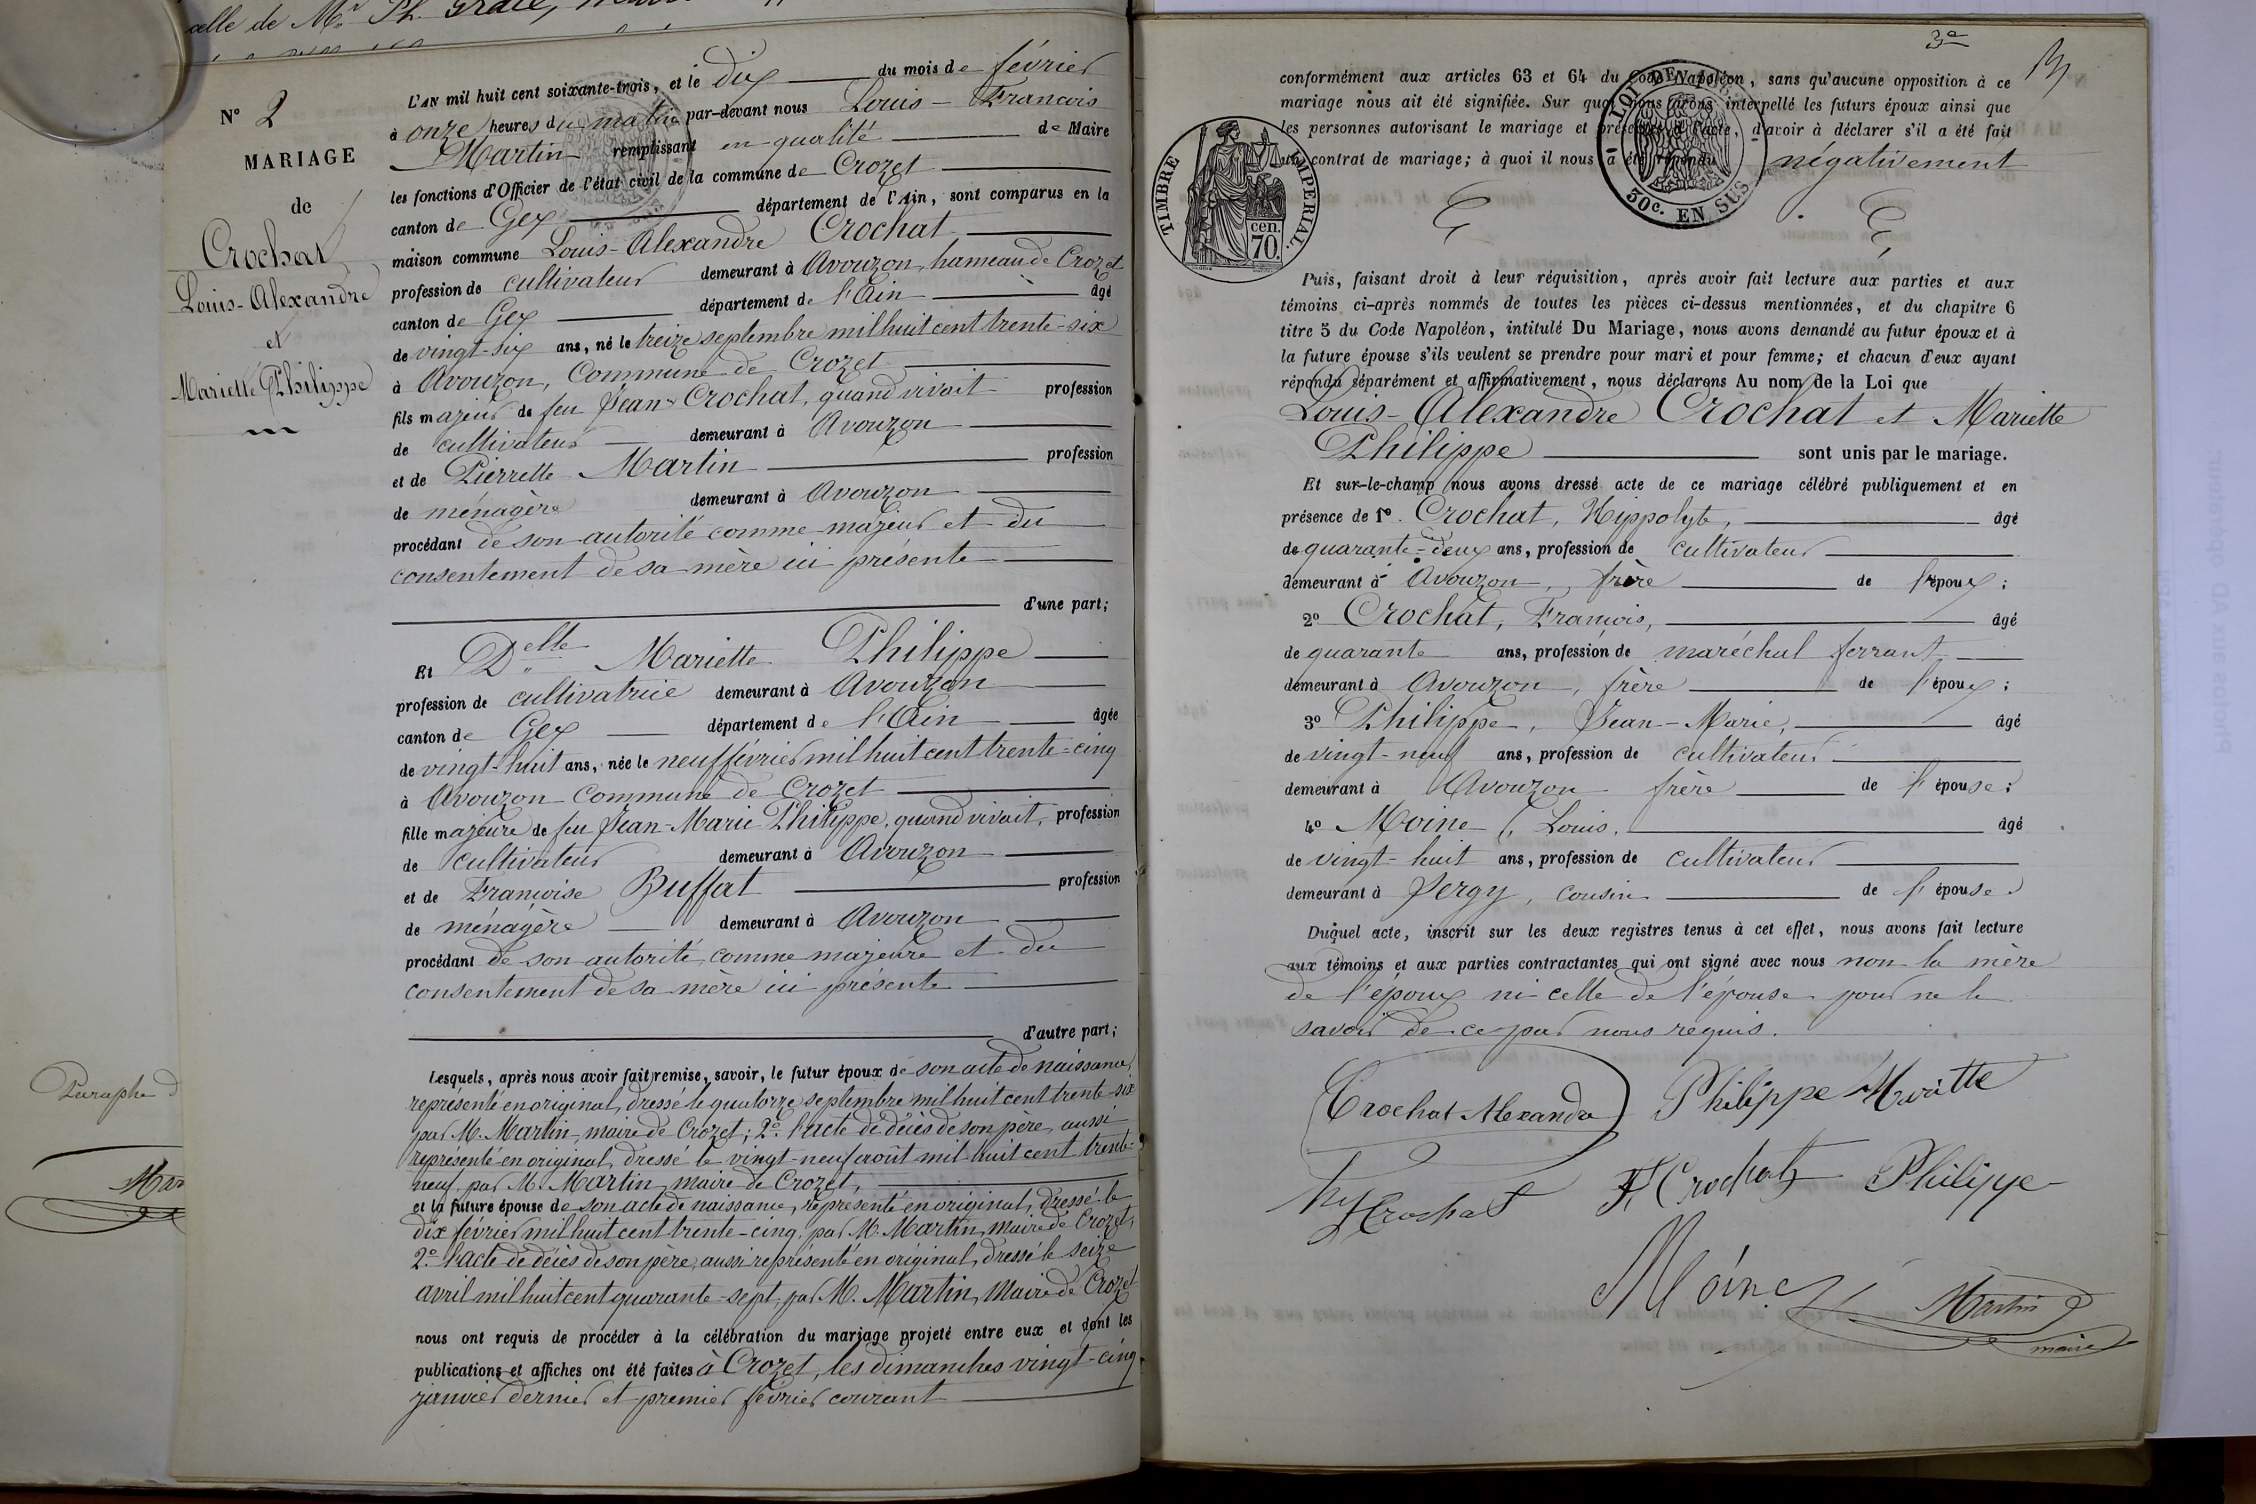 celle de Mr Ph.
Nº 2
MARIAGE
de
Crochat
Louis-Alexandre
et
Mariette Philippe
L'AN mil huit cent soixante-trois, et le dix du mois de février
à onze heures du matin par-devant nous Louis-François
Martin remplissant en qualité de Maire
les fonctions d'Officier de l'état civil de la commune de Crozet
canton de Gex département de l'Ain, sont comparus en la
maison commune Louis-Alexandre Crochat
profession de cultivateur demeurant à Avouzon, hameau de Crozet
canton de Gex département de l'Ain âgé
de vingt-six ans, né le treize septembre mil huit cent trente-six
à Avouzon, Commune de Crozet
fils majeur de feu Jean Crochat, quand vivait profession
de cultivateur demeurant à Avouzon
et de Pierrette Martin profession
de ménagère demeurant à Avouzon
procédant de son autorité comme majeur et du
consentement de sa mère ici présente
d'une part;
Et Delle Mariette Philippe
profession de cultivatrice demeurant à Avouzon
canton de Gex département de l'Ain âgée
de vingt-huit ans, née le neuf février mil huit cent trente-cinq
à Avouzon Commune de Crozet
fille majeure de feu Jean-Marie Philippe, quand vivait, profession
de cultivateur demeurant à Avouzon
et de Françoise Buffat profession
de ménagère demeurant à Avouzon
procédant de son autorité, comme majeure et du
consentement de sa mère ici présente
d'autre part;
Lesquels, après nous avoir fait remise, savoir, le futur époux de son acte de naissance,
représenté en original, dressé le quatorze septembre mil huit cent trente-six
par M. Martin, maire de Crozet; 2º l'acte de décès de son père, aussi
représenté en original, dressé le vingt-neuf août mil huit cent trente-
neuf, par M. Martin, maire de Crozet,
et la future épouse de son acte de naissance, représenté en original, dressé le
dix février mil huit cent trente-cinq, par M. Martin, maire de Crozet,
2º l'acte de décès de son père, aussi représenté en original, dressé le seize
avril mil huit cent quarante-sept, par M. Martin, Maire de Crozet
nous ont requis de procéder à la célébration du mariage projeté entre eux et dont les
publications et affiches ont été faites à Crozet, les dimanches vingt-cinq
janvier dernier et premier février courant
Paraphe
3e
conformément aux articles 63 et 64 du Code Napoléon, sans qu'aucune opposition à ce
mariage nous ait été signifiée. Sur quoi nous avons interpellé les futurs époux ainsi que
les personnes autorisant le mariage et présentes à l'acte, d'avoir à déclarer s'il a été fait
un contrat de mariage; à quoi il nous a été répondu négativement
TIMBRE IMPERIAL.
cen.
70.
LOI DE
30c. EN SUS
Puis, faisant droit à leur réquisition, après avoir fait lecture aux parties et aux
témoins ci-après nommés de toutes les pièces ci-dessus mentionnées, et du chapitre 6
titre 5 du Code Napoléon, intitulé Du Mariage, nous avons demandé au futur époux et à
la future épouse s'ils veulent se prendre pour mari et pour femme; et chacun d'eux ayant
répondu séparément et affirmativement, nous déclarons Au nom de la Loi que
Louis-Alexandre Crochat et Mariette
Philippe sont unis par le mariage.
Et sur-le-champ nous avons dressé acte de ce mariage célébré publiquement et en
présence de 1º. Crochat, Hippolyte, âgé
de quarante-deux ans, profession de cultivateur
demeurant à Avouzon, frère de l'époux;
2º Crochat, François, âgé
de quarante ans, profession de maréchal ferrant
demeurant à Avouzon, frère de l'époux;
3º Philippe, Jean-Marie, âgé
de vingt-neuf ans, profession de cultivateur
demeurant à Avouzon frère de l'épouse;
4º Moine, Louis, âgé
de vingt-huit ans, profession de cultivateur
demeurant à Sergy, cousin de l'épouse.
Duquel acte, inscrit sur les deux registres tenus à cet effet, nous avons fait lecture
aux témoins et aux parties contractantes qui ont signé avec nous non la mère
de l'époux ni celle de l'épouse pour ne le
savoir de ce par nous requis.
Crochat Alexandre Philippe Mariette
Hy Crochat F. Crochat Philippe
Moine Martin
maire